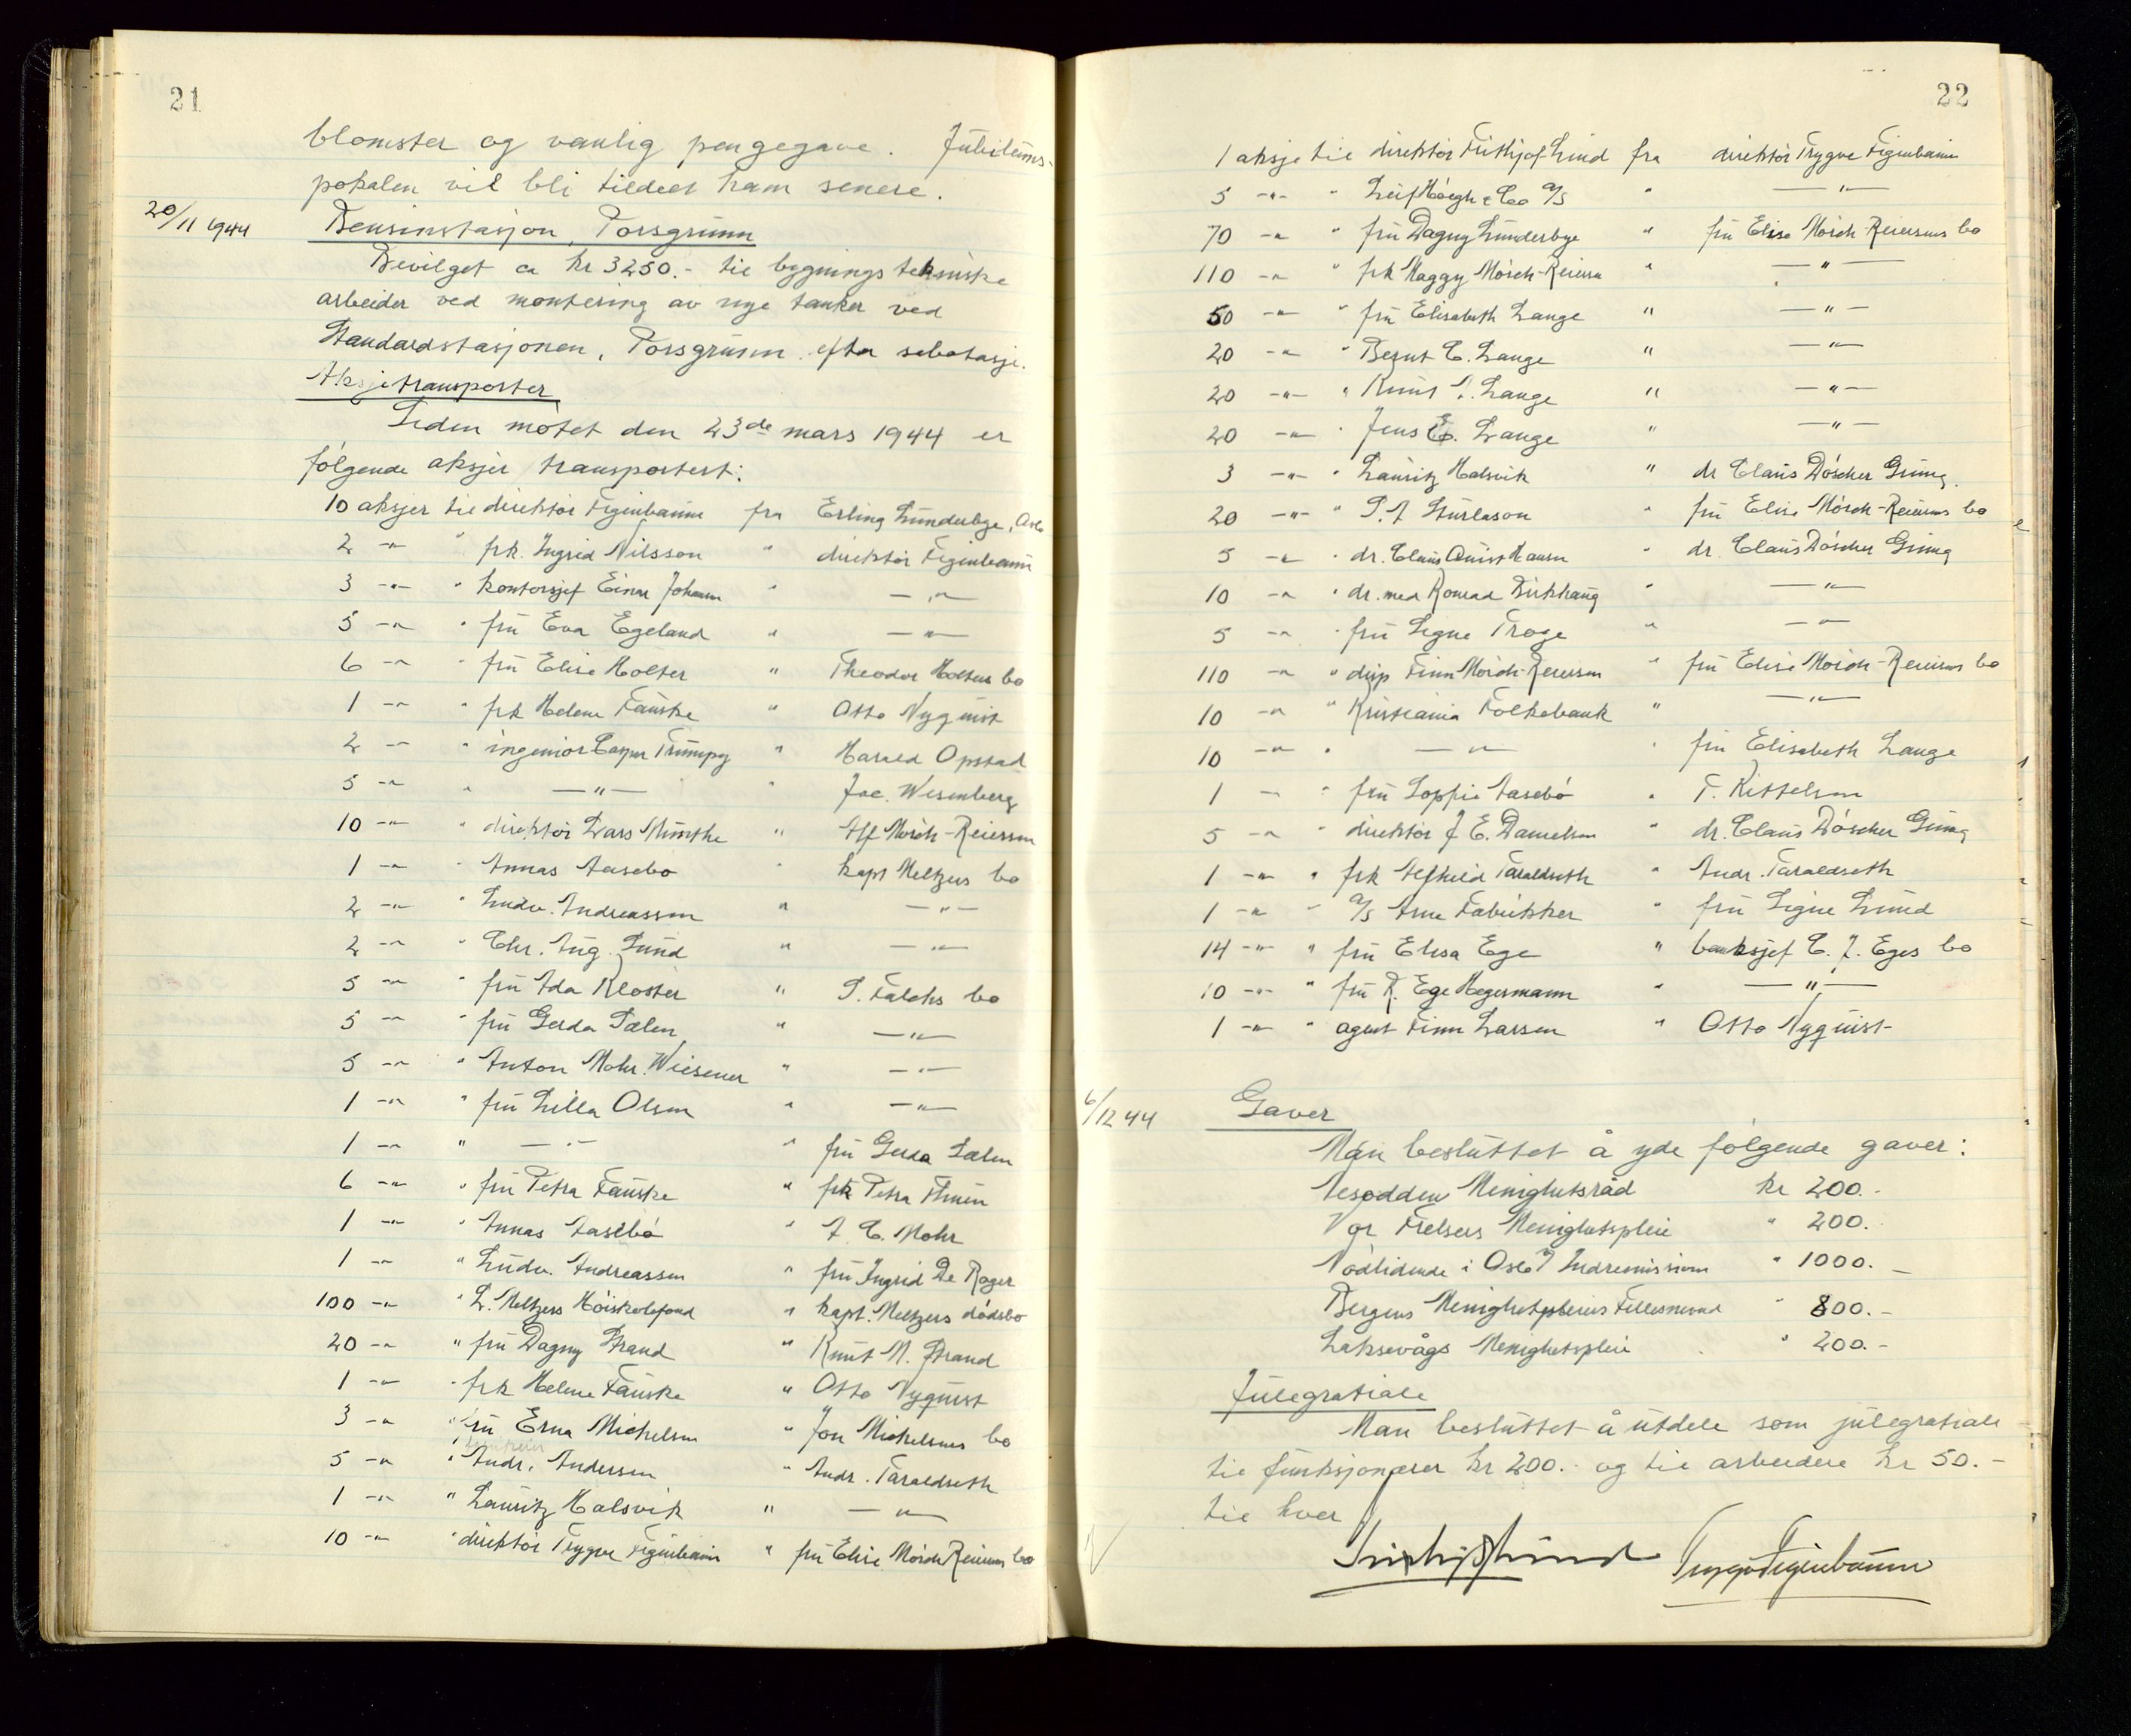 21
blomster og vanlig pengegave. Jubileums-
pokalen vil bli tildelt ham senere.
20/11 1944 Bensinstasjon, Porsgrunn
Bevilget ca kr 3250.- til bygningstekniske
arbeider ved montering av nye tanker ved
Standardstasjonen, Porsgrunn efter sabotasje.
Aksjetransporter
Siden møtet den 23de mars 1944 er
følgende aksjer transportert:
10 aksjer til direktør Figenbaum fra Erling Lunderbye, Oslo
2 -"- " frk. Ingrid Nilsson " direktør Figenbaum
3 -"- " kontorsjef Einar Johansen " -"-
5 -"- " fru Eva Egeland " -"-
6 -"- " fru Elise Holter " Theodor Holters bo
1 -"- " frk Helene Fauske " Otto Nyquist
2 -"- " ingeniør Caspar Trumpy " Harald Opstad
5 -"- " -"- " Jac. Wesenberg
10 -"- " direktør Lars Munthe " Alf Mørch-Reiersen
1 -"- " Annas Aasebø " kapt Meltzers bo
2 -"- " Ludv. Andreassen " -"-
2 -"- " Chr. Aug. Lund " -"-
5 -"- " fru Ada Kloster " S. Falchs bo
5 -"- " fru Gerda Sælen " -"-
5 -"- " Anton Mohr Wiesener " -"-
1 -"- " fru Lilla Olsen " -"-
1 -"- " -"- " fru Gerda Sælen
6 -"- " fru Petra Fauske " frk Petra
1 -"- " Annas Aasebø " A. C. Mohr
1 -"- " Ludv. Andreassen " fru Ingrid De Roger
100 -"- " L. Meltzers Høiskolefond " kapt. Meltzers dødsbo
20 -"- " fru Dagny Strand " Knut N. Strand
1 -"- " frk Helene Fauske " Otto Nyquist
3 -"- " fru Erna Michelsen " Jon Michelsens bo
5 -"- " Andr. Andersen " Andr. Taraldseth
1 -"- " Lauritz Halsvik " -"-
10 -"- " direktør Trygve Figenbaum " fru Elise Mørch Reiersens bo
22
1 aksje til direktør Frithjof Lind fra direktør Trygve Figenbaum
5 -"- " Leif Høegh & Co A/S " -"-
70 -"- " fru Dagny Lunderbye " fru Elise Mørch-Reiersens bo
110 -"- " frk Maggy Mørch-Reiersen " -"-
50 -"- " fru Elisabeth Lange " -"-
20 -"- " Bernt C. Lange " -"-
20 -"- " Knut Lange " -"-
20 -"- " Jens E. Lange " -"-
3 -"- " Lauritz Halsvik " dr Claus Döscher Grung.
20 -"- " S. A. Sturlason " fru Elise Mørch-Reiersens bo
5 -"- " dr. Claus Hansen " dr. Claus Döscher Grung
10 -"- " dr. med Konrad Birkhaug " -"-
5 -"- " fru Signe Troye " -"-
110 -"- " disp Finn Mørch-Reiersen " fru Elise Mørch-Reiersens bo
10 -"- " Kristiania Folkebank " -"-
10 -"- " -"- " fru Elisabeth Lange
1 - " fru Soffie Aasebø " T. Kittelsen
5 -"- " direktør J. E. Danielsen " dr. Claus Döscher Grung
1 -"- " frk Alfhild Taraldseth " Andr. Taraldseth
1 -"- " A/S Arne Fabrikker " fru Signe Lund
14 -"- " fru Elisa Ege " banksjef C. J. Eges bo
10 -"- " fru R. Ege Hegermann " -"-
1 -"- " agent Finn Larsen " Otto Nyquist
6/12 44 Gaver
Man besluttet å yde følgende gaver:
Nesodden Menighetsråd kr 200.-
Vor Frelsers Menighetspleie " 200.-
Nødlidende i Oslo Indremisjon " 1000.-
Bergens Menighetspleiers Fellesnemnd " 800.-
Laksevågs Menighetspleie " 200.-
Julegratiale
Man besluttet å utdele som julegratiale
til funksjonærer kr 200.- og til arbeidere kr 50.-
til hver
Frithjof Lind Trygve Figenbaum